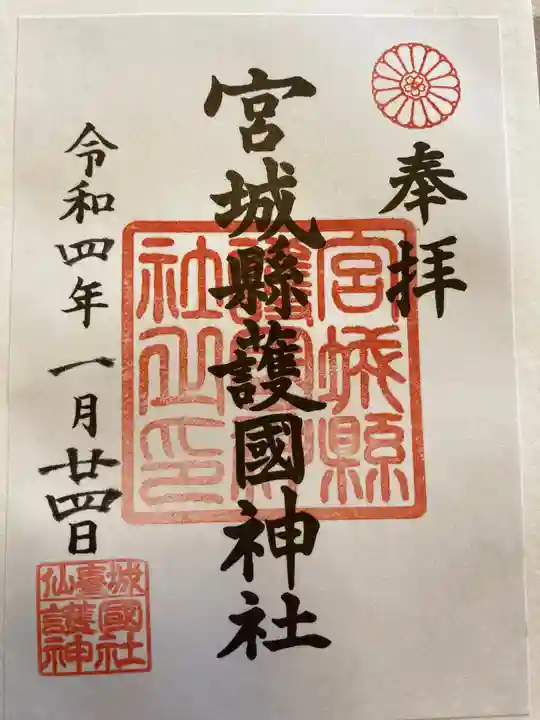 奉拝
宮城縣護國神社
令和四年一月廿四日
宮城縣
護國神
社之印
城國社
仙臺護神